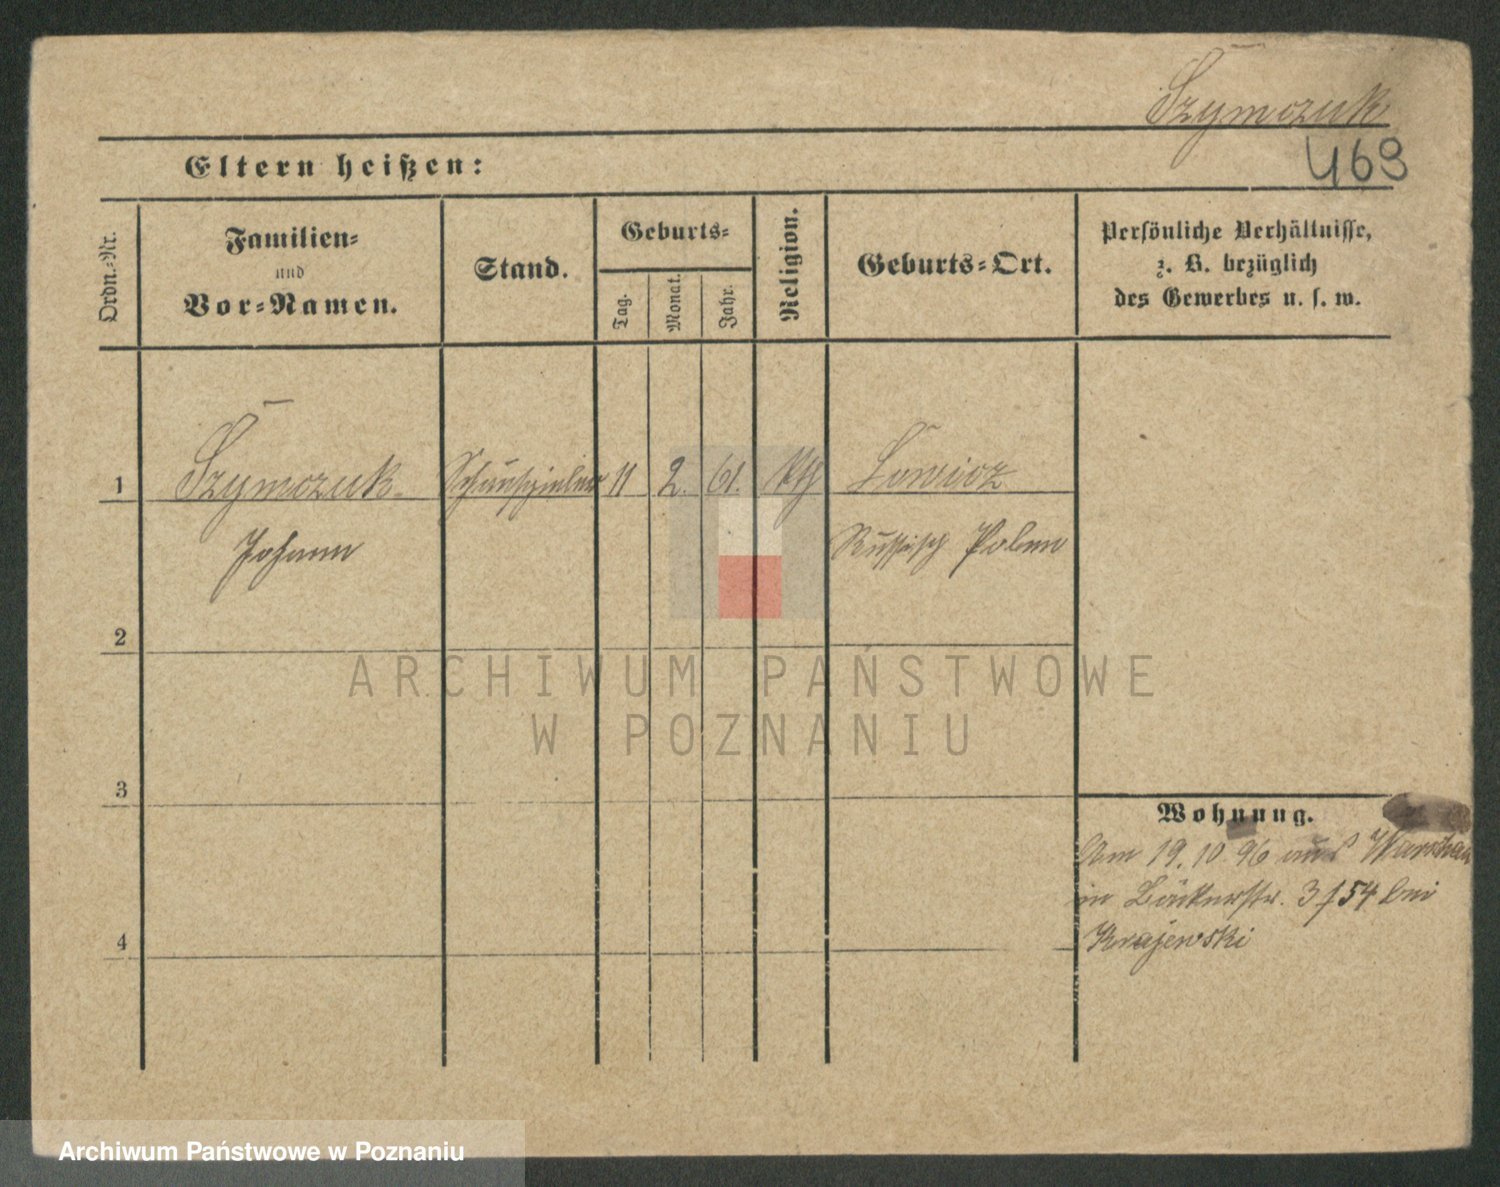 Szymczuk
469
Eltern heißen:
Ordn.-Nr.
Familien-
und
Vor-Namen.
Stand.
Geburts-
Tag.
Monat.
Jahr.
Religion.
Geburts-Ort.
Persönliche Verhältnisse,
z. B. bezüglich
des Gewerbes u. s. w.
1 Szymczuk Schauspieler 11 2. 61. kth Lowicz
Johann Russisch Polen
2
3
4
Wohnung.
Am 19.10.96 aus Warschau
in Bäckerstr. 3/54 bei
Krajewski
ARCHIWUM PAŃSTWOWE
W POZNANIU
Archiwum Państwowe w Poznaniu